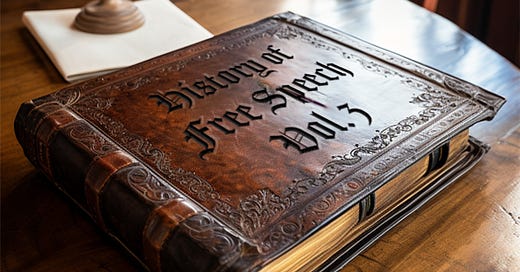 History of
Free Speech
Vol. 3